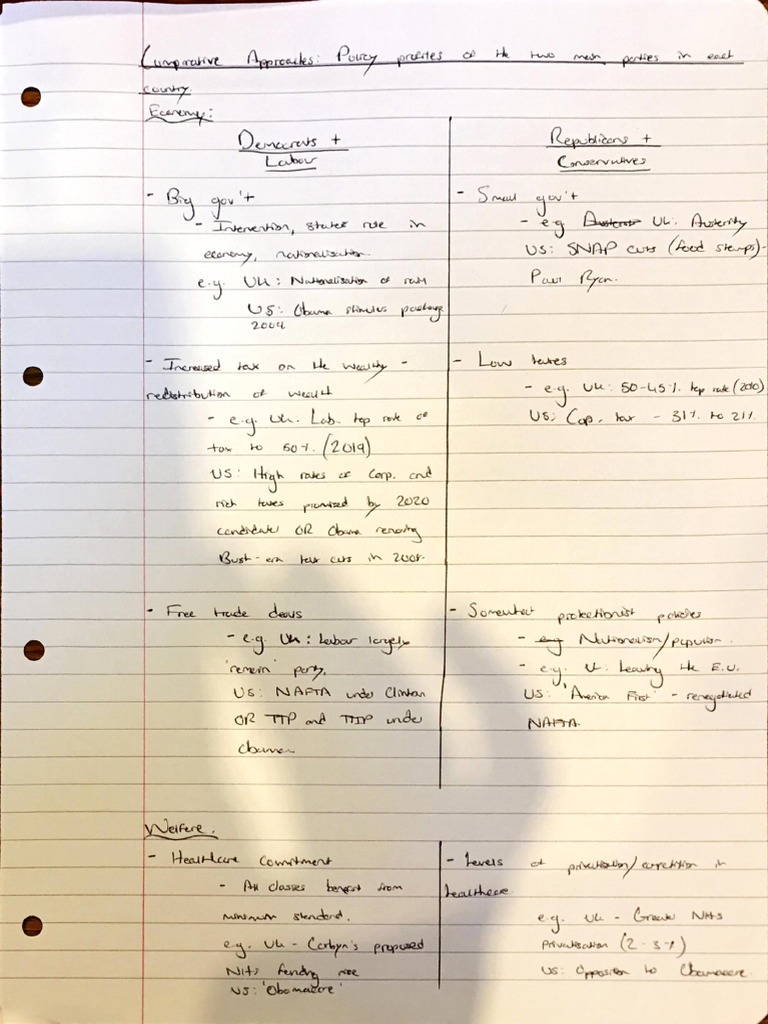 Comparative Approaches: Policy profiles of the two main parties in each
country.
Economy:
Democrats +
Labour
- Big gov't
- Intervention, states role in
economy, nationalisation.
e.g. UK: Nationalisation of rail
US: Obama stimulus package
2009
- Increased tax on the wealthy -
redistribution of wealth
- e.g. UK. Lab. top rate of
tax to 50%. (2019)
US: High rates of Corp. and
rich taxes promised by 2020
candidates OR Obama removing
Bush-era tax cuts in 2008.
- Free trade deals
- e.g. UK: Labour largely
'remain' party.
US: NAFTA under Clinton
OR TTP and TTIP under
Obama
Republicans +
Conservatives
- Small gov't
- e.g. Austerity UK: Austerity
US: SNAP cuts (food stamps) -
Paul Ryan.
- Low taxes
- e.g. UK: 50-45% top rate (2010)
US: Cap. tax - 31% to 21%
- Somewhat protectionist policies
- e.g. Nationalism/populism.
- e.g. U. Leaving the E.U.
US: 'America First' - renegotiated
NAFTA.
Welfare.
- Healthcare commitment
- All classes benefit from
minimum standard.
e.g. UK - Corbyn's proposed
NHS funding rise
US: 'Obamacare'
- Levels of privatisation/competition in
healthcare
e.g. UK - Greater NHS
Privatisation (2-3%)
US: Opposition to Obamacare